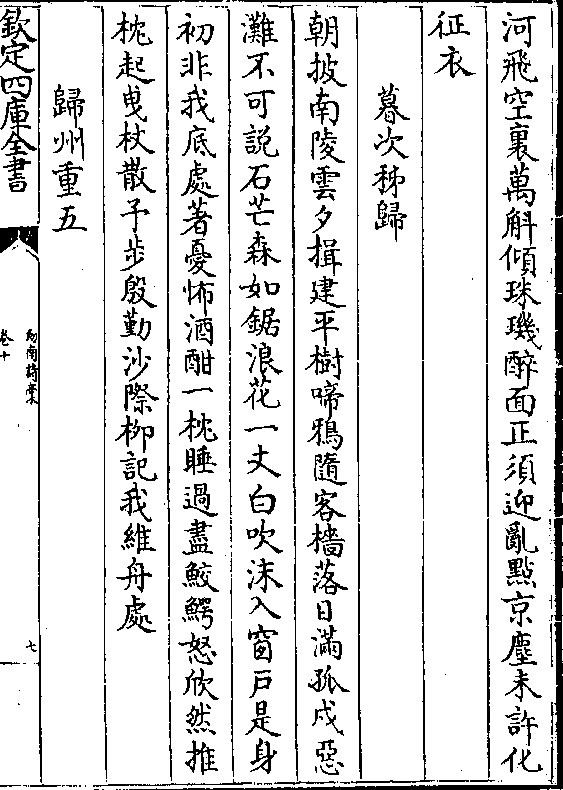 河飛空裏萬斛傾珠璣醉面正須迎亂㸃京塵未許化
征衣
暮次秭歸
朝披南陵雲夕揖建平樹啼鴉隨客檣落日滿孤戍惡
灘不可説石芒森如鋸浪花一丈白吹沫入窗戸是身
初非我底處著憂怖酒酣一枕睡過盡鮫鰐怒欣然推
枕起曳杖散予步殷勤沙際柳記我維舟處
歸州重五
欽定四庫全書
劒南詩稾
卷十
七